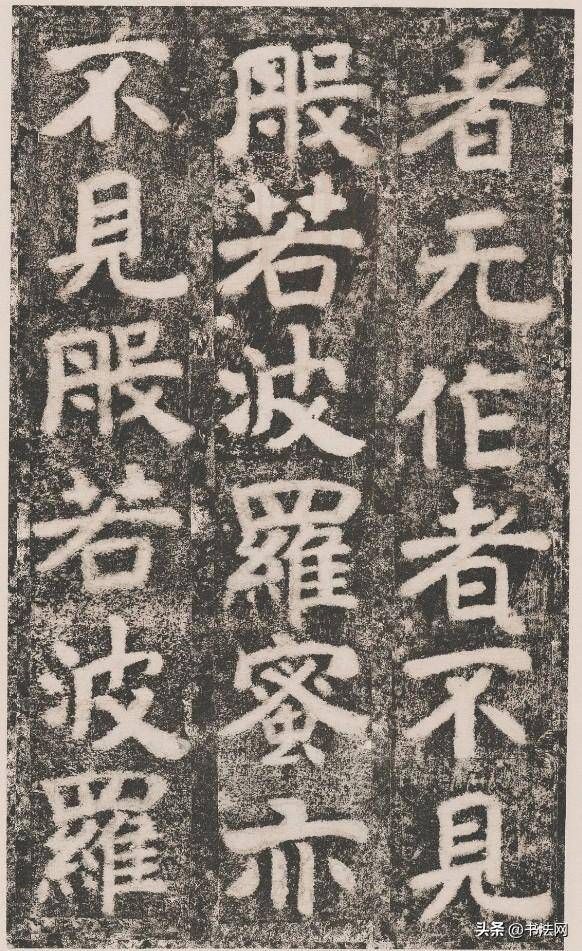 者无作者不見
般若波羅蜜亦
不見般若波羅
头条 @书法网